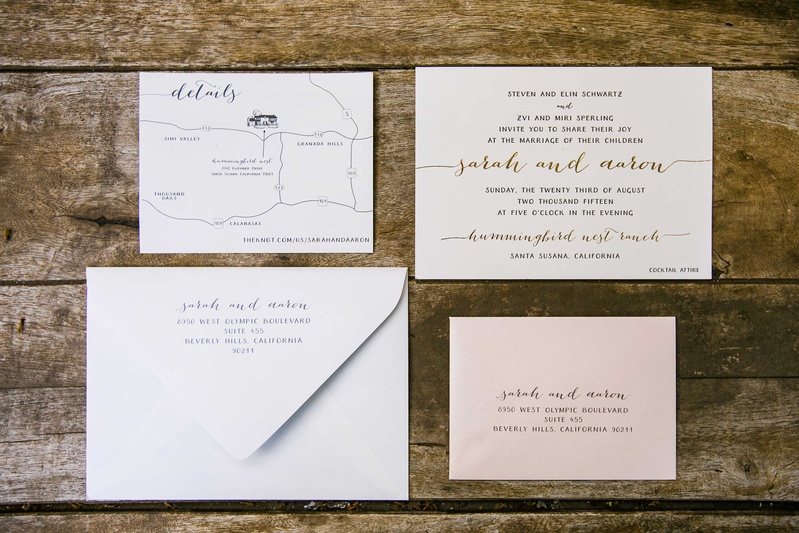 details
5
118
SIMI VALLEY
118
GRANADA HILLS
hummingbird nest
SANTA SUSANA, CALIFORNIA 93063
405
THOUSAND
OAKS
101
101
CALABASAS
THEKNOT.COM/US/SARAHANDAARON
STEVEN AND ELIN SCHWARTZ
and
ZVI AND MIRI SPERLING
INVITE YOU TO SHARE THEIR JOY
AT THE MARRIAGE OF THEIR CHILDREN
sarah and aaron
SUNDAY, THE TWENTY THIRD OF AUGUST
TWO THOUSAND FIFTEEN
AT FIVE O'CLOCK IN THE EVENING
hummingbird nest ranch
SANTA SUSANA, CALIFORNIA
COCKTAIL ATTIRE
sarah and aaron
8950 WEST OLYMPIC BOULEVARD
SUITE 455
BEVERLY HILLS, CALIFORNIA
90211
sarah and aaron
8950 WEST OLYMPIC BOULEVARD
SUITE 455
BEVERLY HILLS, CALIFORNIA 90211